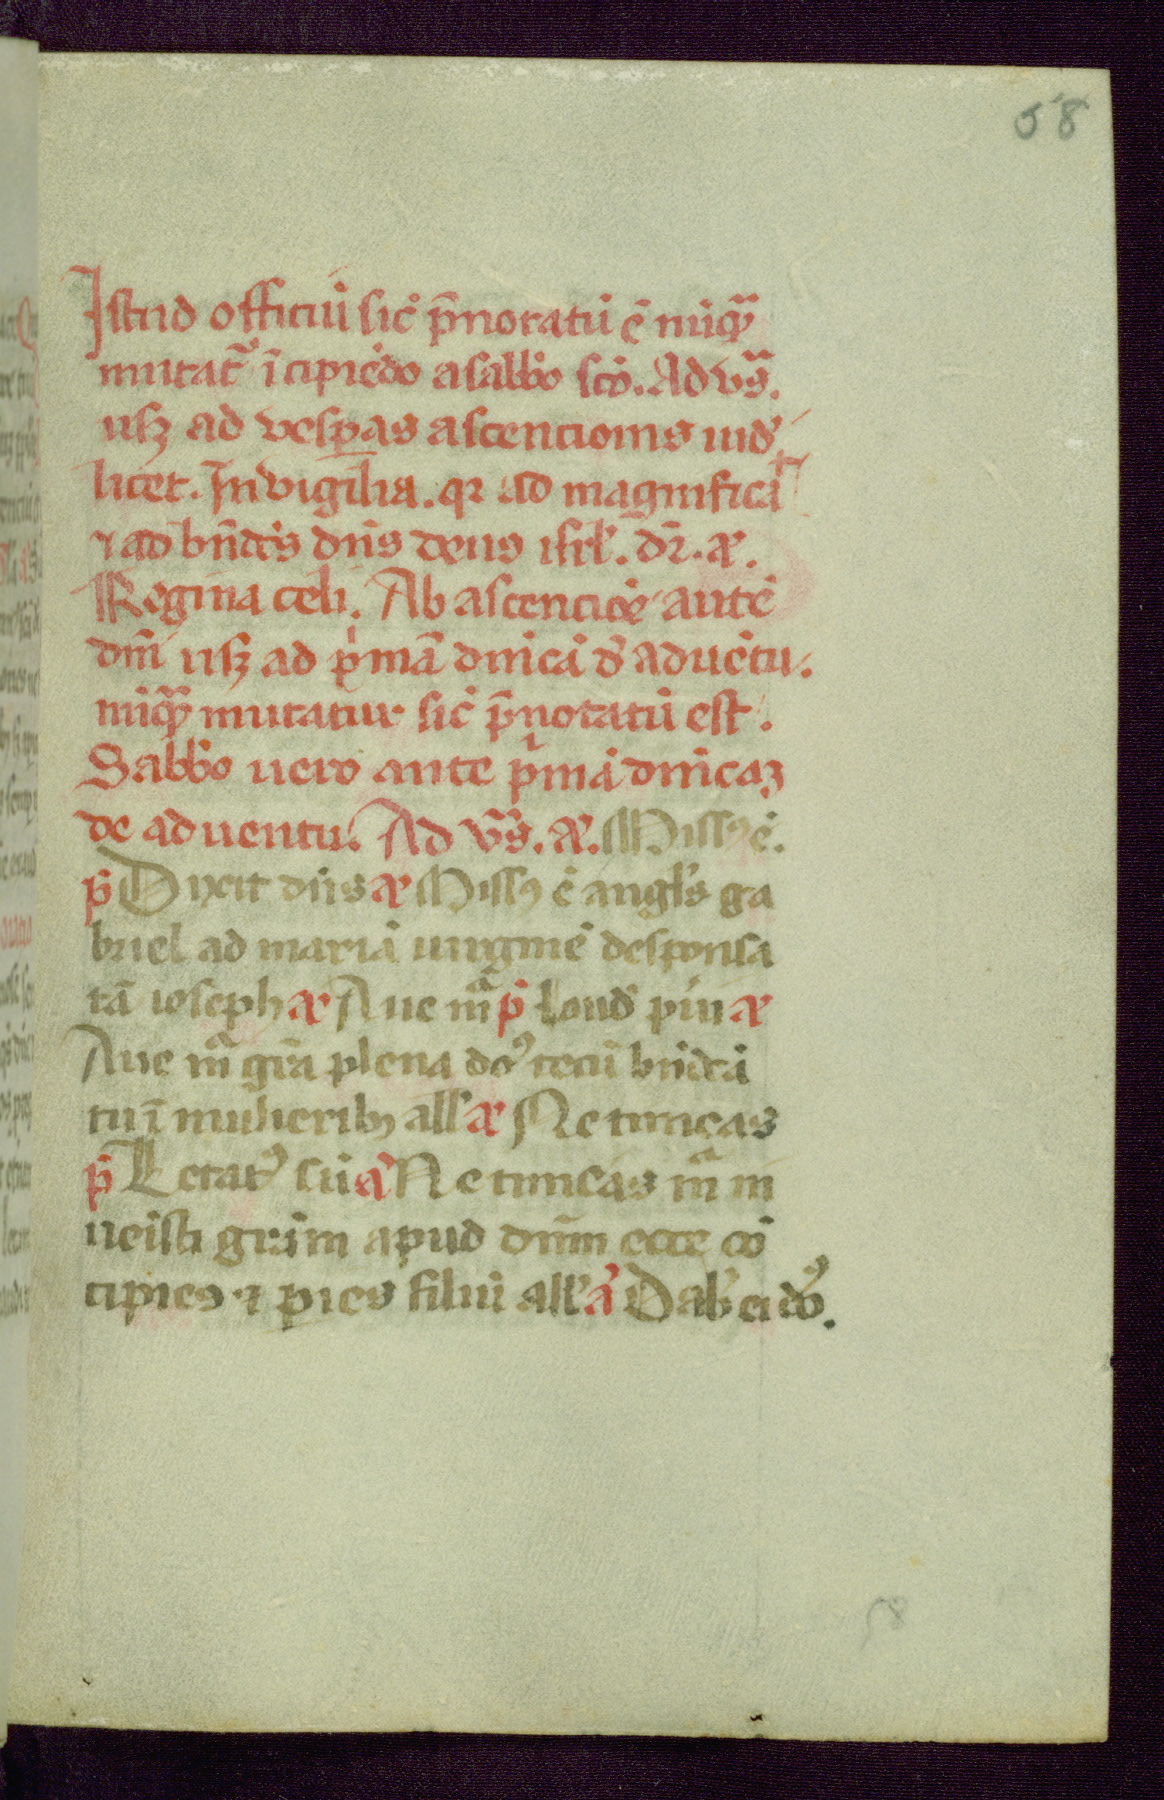 58
Istud officiū sic̄ p̄notatū ē nūq̄ꝫ
mutat᷑ īcipiēdo a sabb̄o sc̄o. Ad v̄s̄.
usqꝫ ad vesꝑas ascentionis uid̄
licet. In vigilia. qꝛ ad magnificā
⁊ ad bn̄dc̄s dn̄s deus isrl̄. dr̄. añ.
Regina celi. Ab ascentiōe autē
dn̄i usqꝫ ad p̄mā dn̄icā d̄ aduētu.
nūq̄ꝫ mutatur sic̄ p̄notatū est.
Sabb̄o uero ante p̄mā dn̄icaꝫ
de aduentu. Ad v̄s̄. añ. Missꝰ ē.
p̄s Dixit dn̄s añ Missꝰ ē angl̄s ga
briel ad mariā uirginē desponsa
tā ioseph añ Aue m̄ p̄s Laud̄ pūi añ
Aue m̄ gr̄a plena do᷒ tecū bn̄dc̄ā
tu ī mulieribꝫ all̄ añ Ne timeas
p̄s Letatꝰ sū añ Ne timeas m̄ in
ueisti grām apud dn̄m ecce cō
cipies ⁊ paries filiū all̄ añ Dab̄ ei do᷒.
58